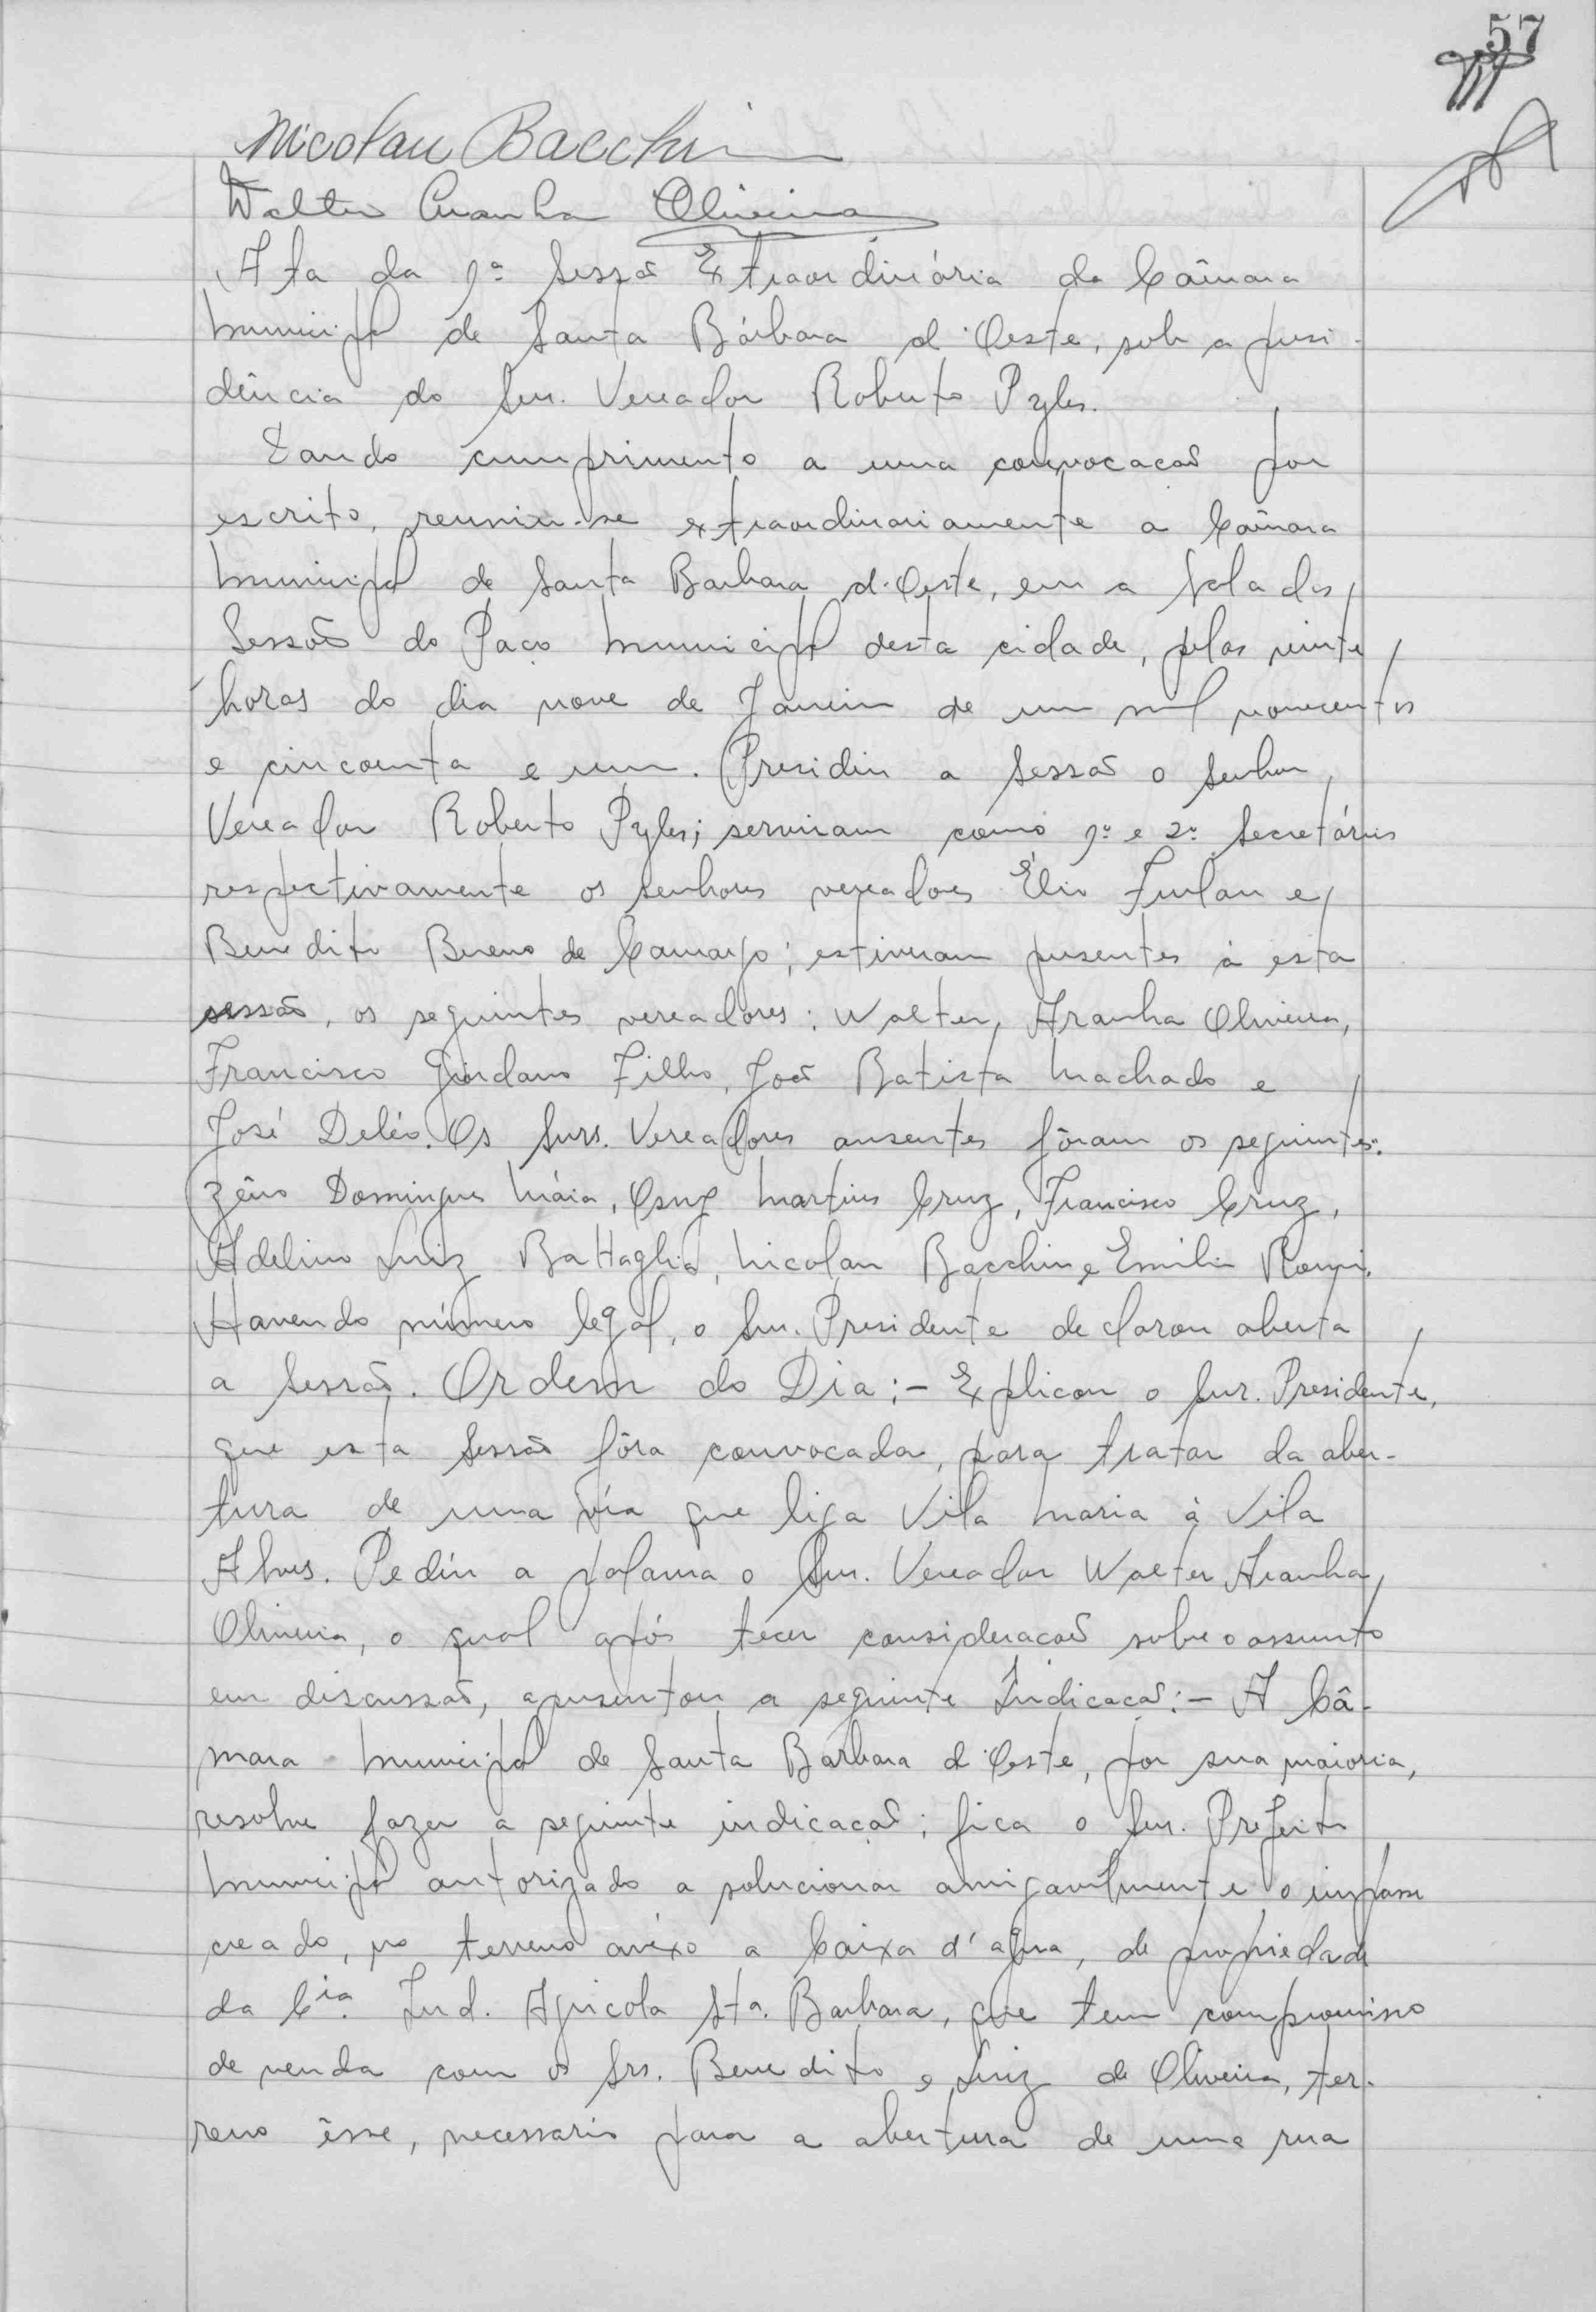 57
Nicolau Bacchin
Walter Aranha Oliveira
Ata da 1ª Sessão Extraordinária da Câmara
Municipal de Santa Bárbara d'Oeste, sob a presi-
dência do Snr. Vereador Roberto Pyles.
Dando cumprimento a uma convocação por
escrito, reuniu-se extraordinariamente a Câmara
Municipal de Santa Barbara d'Oeste, em a Sala das
Sessões do Paço Municipal desta cidade, pelas vinte
horas do dia nove de Janeiro de um mil novecentos
e cincoenta e um. Presidiu a Sessão o Senhor
Vereador Roberto Pyles; serviram como 1º e 2º Secretários
respectivamente os senhores vereadores Élio Furlan e
Benedito Bueno de Camargo; estiveram presentes à esta
sessão, os seguintes vereadores: Walter Aranha Oliveira,
Francisco Giordano Filho, João Batista Machado e
José Deléo. Os Snrs. Vereadores ausentes fôram os seguintes:
Zêno Domingues Máia, Osny Martins Cruz, Francisco Cruz,
Adelino Luiz Battaglia, Nicolau Bacchin e Emilio Romi.
Havendo número legal, o Snr. Presidente declarou aberta
a Sessão. Ordem do Dia:- Explicou o Snr. Presidente,
que esta Sessão fôra convocada, para tratar da aber-
tura de uma via que liga Vila Maria à Vila
Alves. Pediu a palavra o Snr. Vereador Walter Aranha
Oliveira, o qual após tecer considerações sobre o assunto
em discussão, apresentou a seguinte Indicação:- A Câ-
mara Municipal de Santa Bárbara d'Oeste, por sua maioria,
resolve fazer a seguinte indicação; fica o Snr. Prefeito
Municipal autorizado a solucionar amigavelmente o impasse
creado, no terreno anéxo a Caixa d'agua, de propriedade
da Cia. Ind. Agricola Sta. Barbara, que tem compromisso
de venda com os Srs. Benedito e Luiz de Oliveira, ter-
reno êsse, necessario para a abertura de uma rua